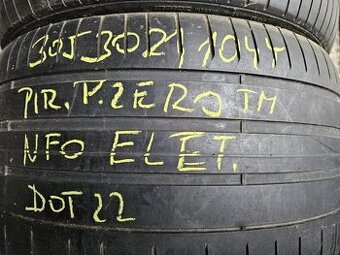 305 30 21 104Y
PIR. P. ZERO TM
NFO ELET.
DOT 22